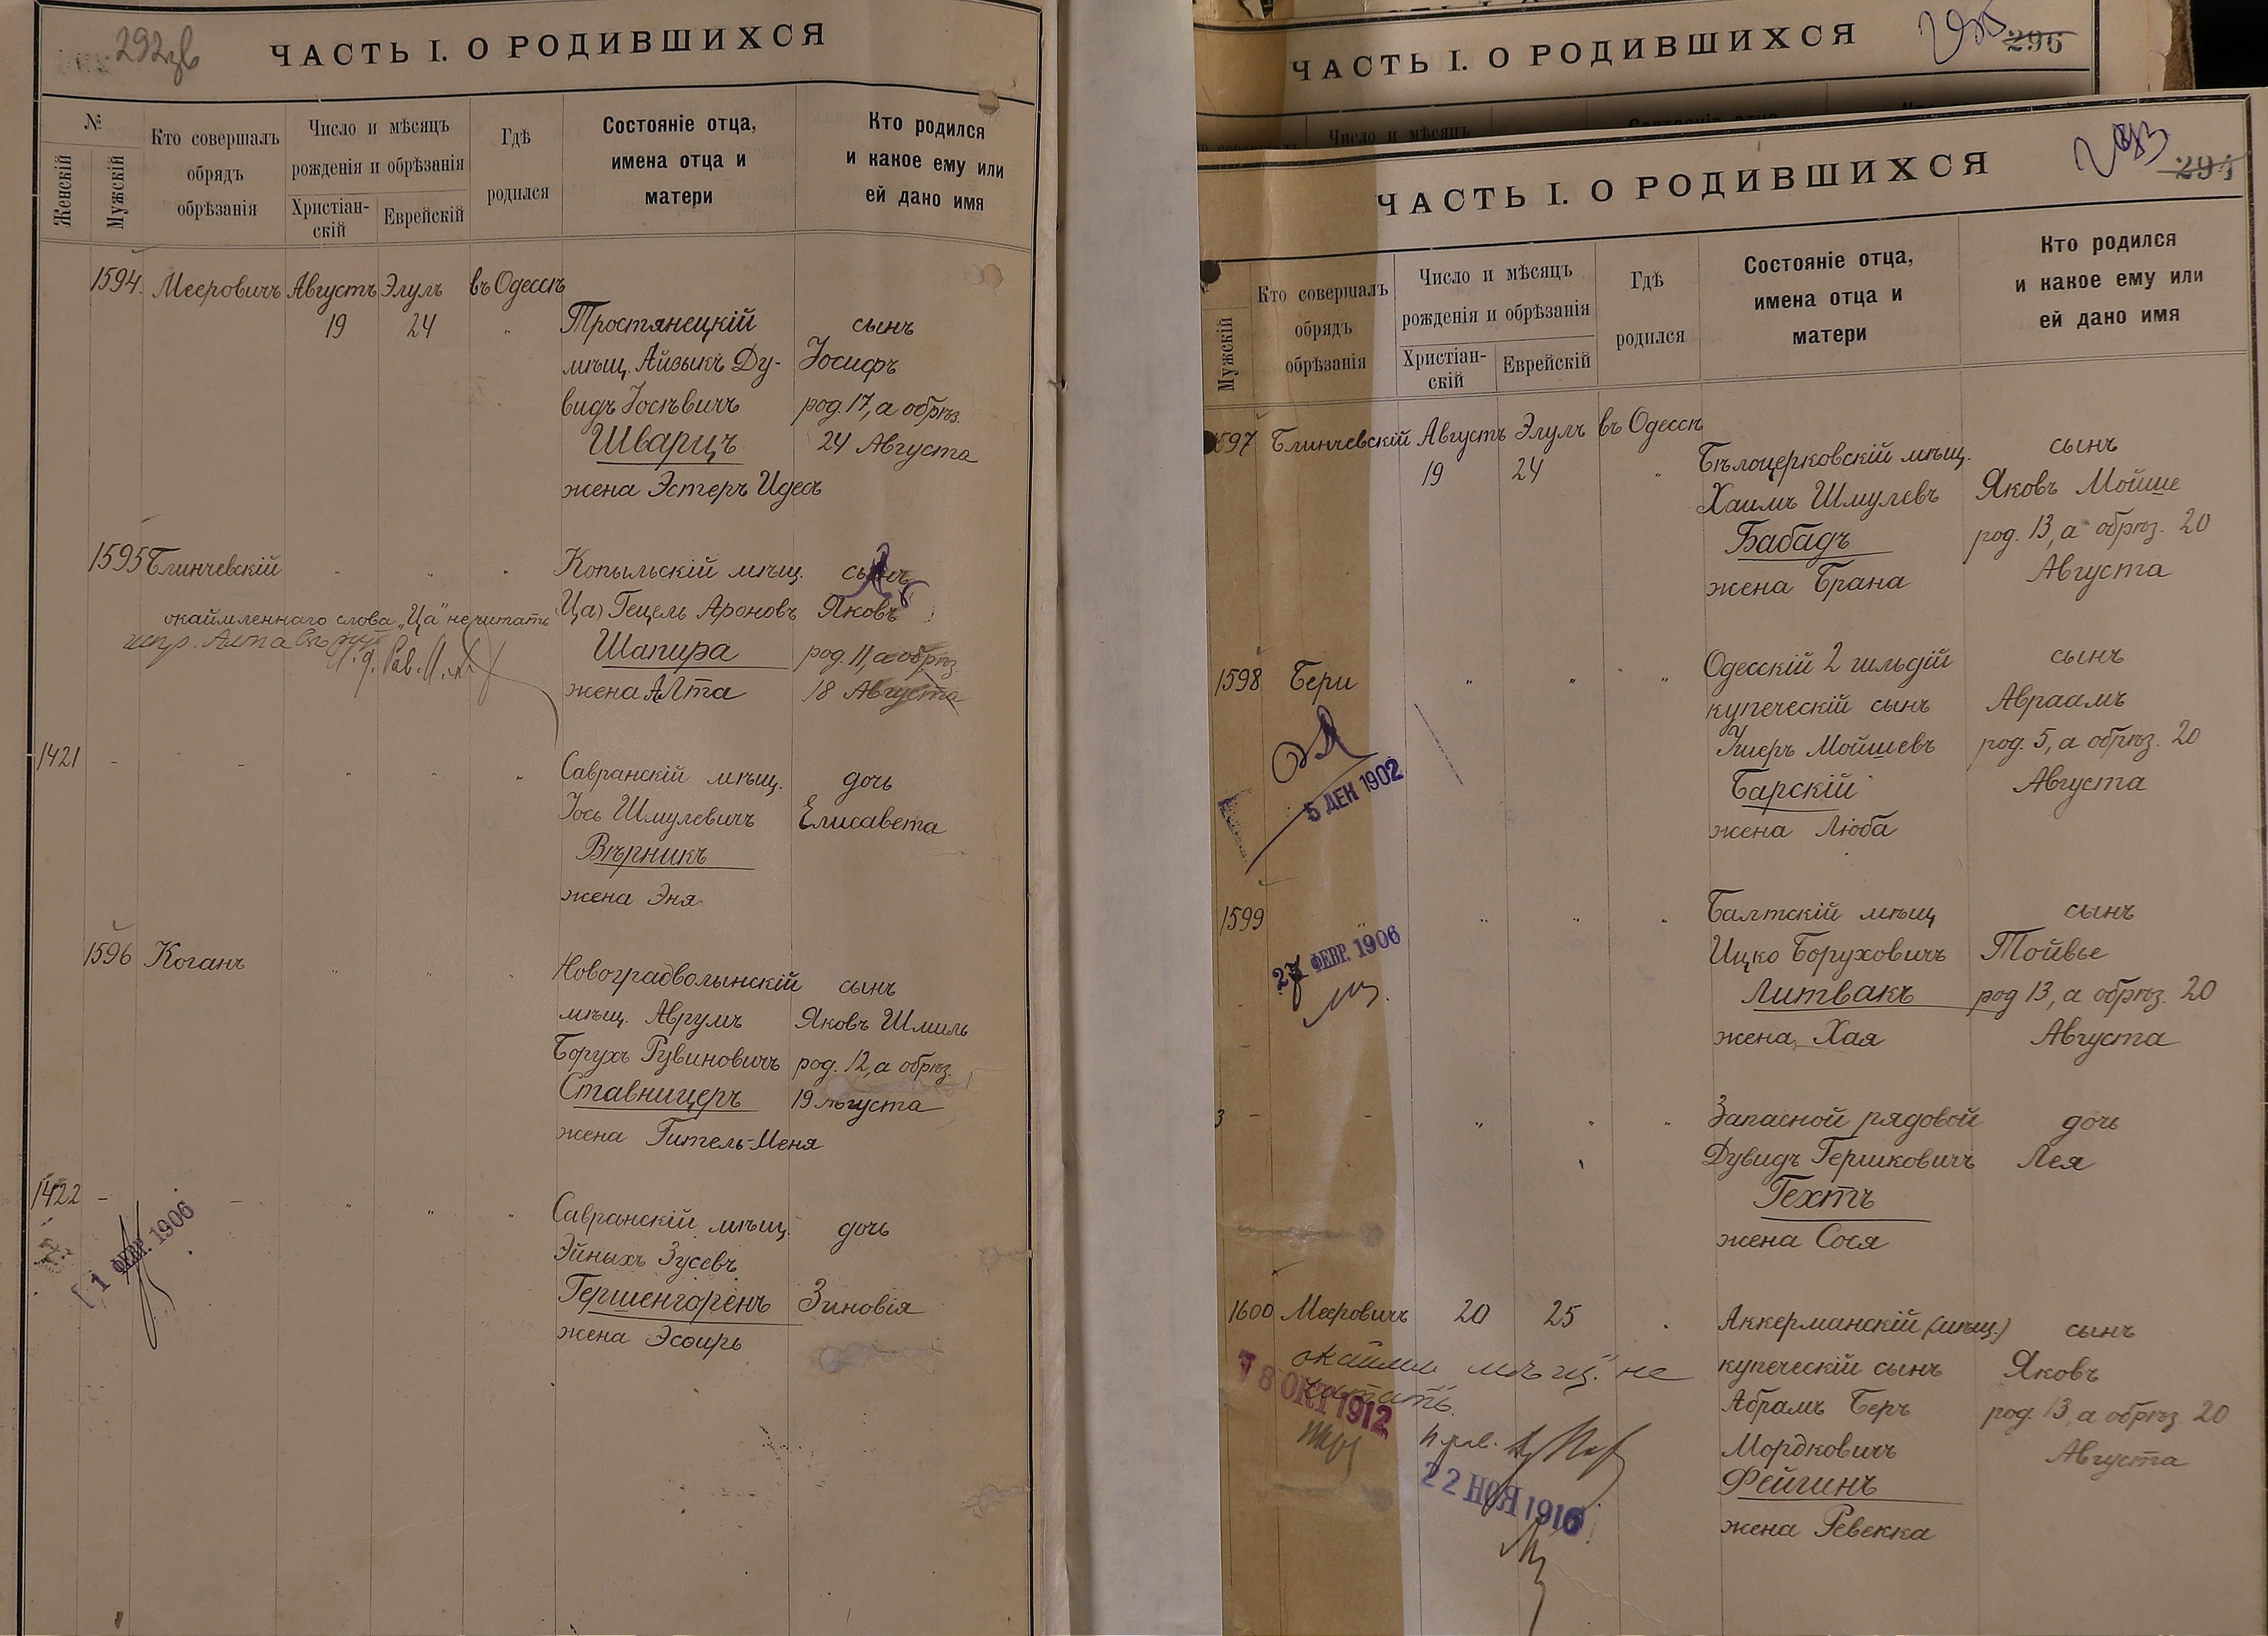 292зв
ЧАСТЬ I. О РОДИВШИХСЯ
№
Женскій
Мужскій
Кто совершалъ
обрядъ
обрѣзанія
Число и мѣсяцъ
рожденія и обрѣзанія
Христіан-
скій
Еврейскій
Гдѣ
родился
Состояніе отца,
имена отца и
матери
Кто родился
и какое ему или
ей дано имя
1594. Мееровичъ Августъ Элулъ въ Одессѣ
19 24 " Тростянецкій сынъ
мѣщ. Айзыкъ Ду- Іосифъ
видъ Іосѣвичъ род. 17, а обрѣз.
Шварцъ 24 Августа
жена Эстеръ Идесъ
1595 Блинчевскій " " " Копыльскій мѣщ. сынъ
(Ца) Гецель Ароновъ Яковъ
окаймленнаго слова „Ца" не читать
Шапира род. 11, а обрѣз.
жена Алта 18 Августа
1421 - - " " " Савранскій мѣщ. дочь
Іось Шмулевичъ Елисавета
Вѣрникъ
жена Эня
1596 Коганъ " " " Новоградволынскій сынъ
мѣщ. Аврумъ Яковъ Шмиль
Борухъ Рувиновичъ род. 12, а обрѣз.
Ставницеръ 19 Августа
жена Гитель-Меня
1422 - - " " " Савранскій мѣщ. дочь
Эйныхъ Зусевъ
Гершенгоренъ Зиновія
жена Эсѳирь
1 ФЕВР. 1906
ЧАСТЬ I. О РОДИВШИХСЯ
295
296
Число и мѣсяцъ
ЧАСТЬ I. О РОДИВШИХСЯ
293
294
Мужскій
Кто совершалъ
обрядъ
обрѣзанія
Число и мѣсяцъ
рожденія и обрѣзанія
Христіан-
скій
Еврейскій
Гдѣ
родился
Состояніе отца,
имена отца и
матери
Кто родился
и какое ему или
ей дано имя
1597 Блинчевскій Августъ Элулъ въ Одессѣ
19 24 " Бѣлоцерковскій мѣщ. сынъ
Хаимъ Шмулевъ Яковъ Мойше
Бабадъ род. 13, а обрѣз. 20
жена Брана Августа
1598 Бери " " " Одесскій 2 гильдій сынъ
купеческій сынъ Авраамъ
Ушеръ Мойшевъ род. 5, а обрѣз. 20
Барскій Августа
жена Люба
5 ДЕК 1902
1599 " " " Балтскій мѣщ сынъ
Ицко Боруховичъ Тойвье
Литвакъ род 13, а обрѣз. 20
жена Хая Августа
27 ФЕВР. 1906
3 - - " " " Запасной рядовой дочь
Дувидъ Гершковичъ Лея
Гехтъ
жена Сося
1600 Мееровичъ 20 25 " Аккерманскій (мѣщ.) сынъ
купеческій сынъ Яковъ
Абрамъ Беръ род. 13, а обрѣз. 20
Мордковичъ Августа
Фейгинъ
жена Ревекка
окаймл мѣщ." не
читать.
8 ОКТ 1912
22 НОЯ 1916